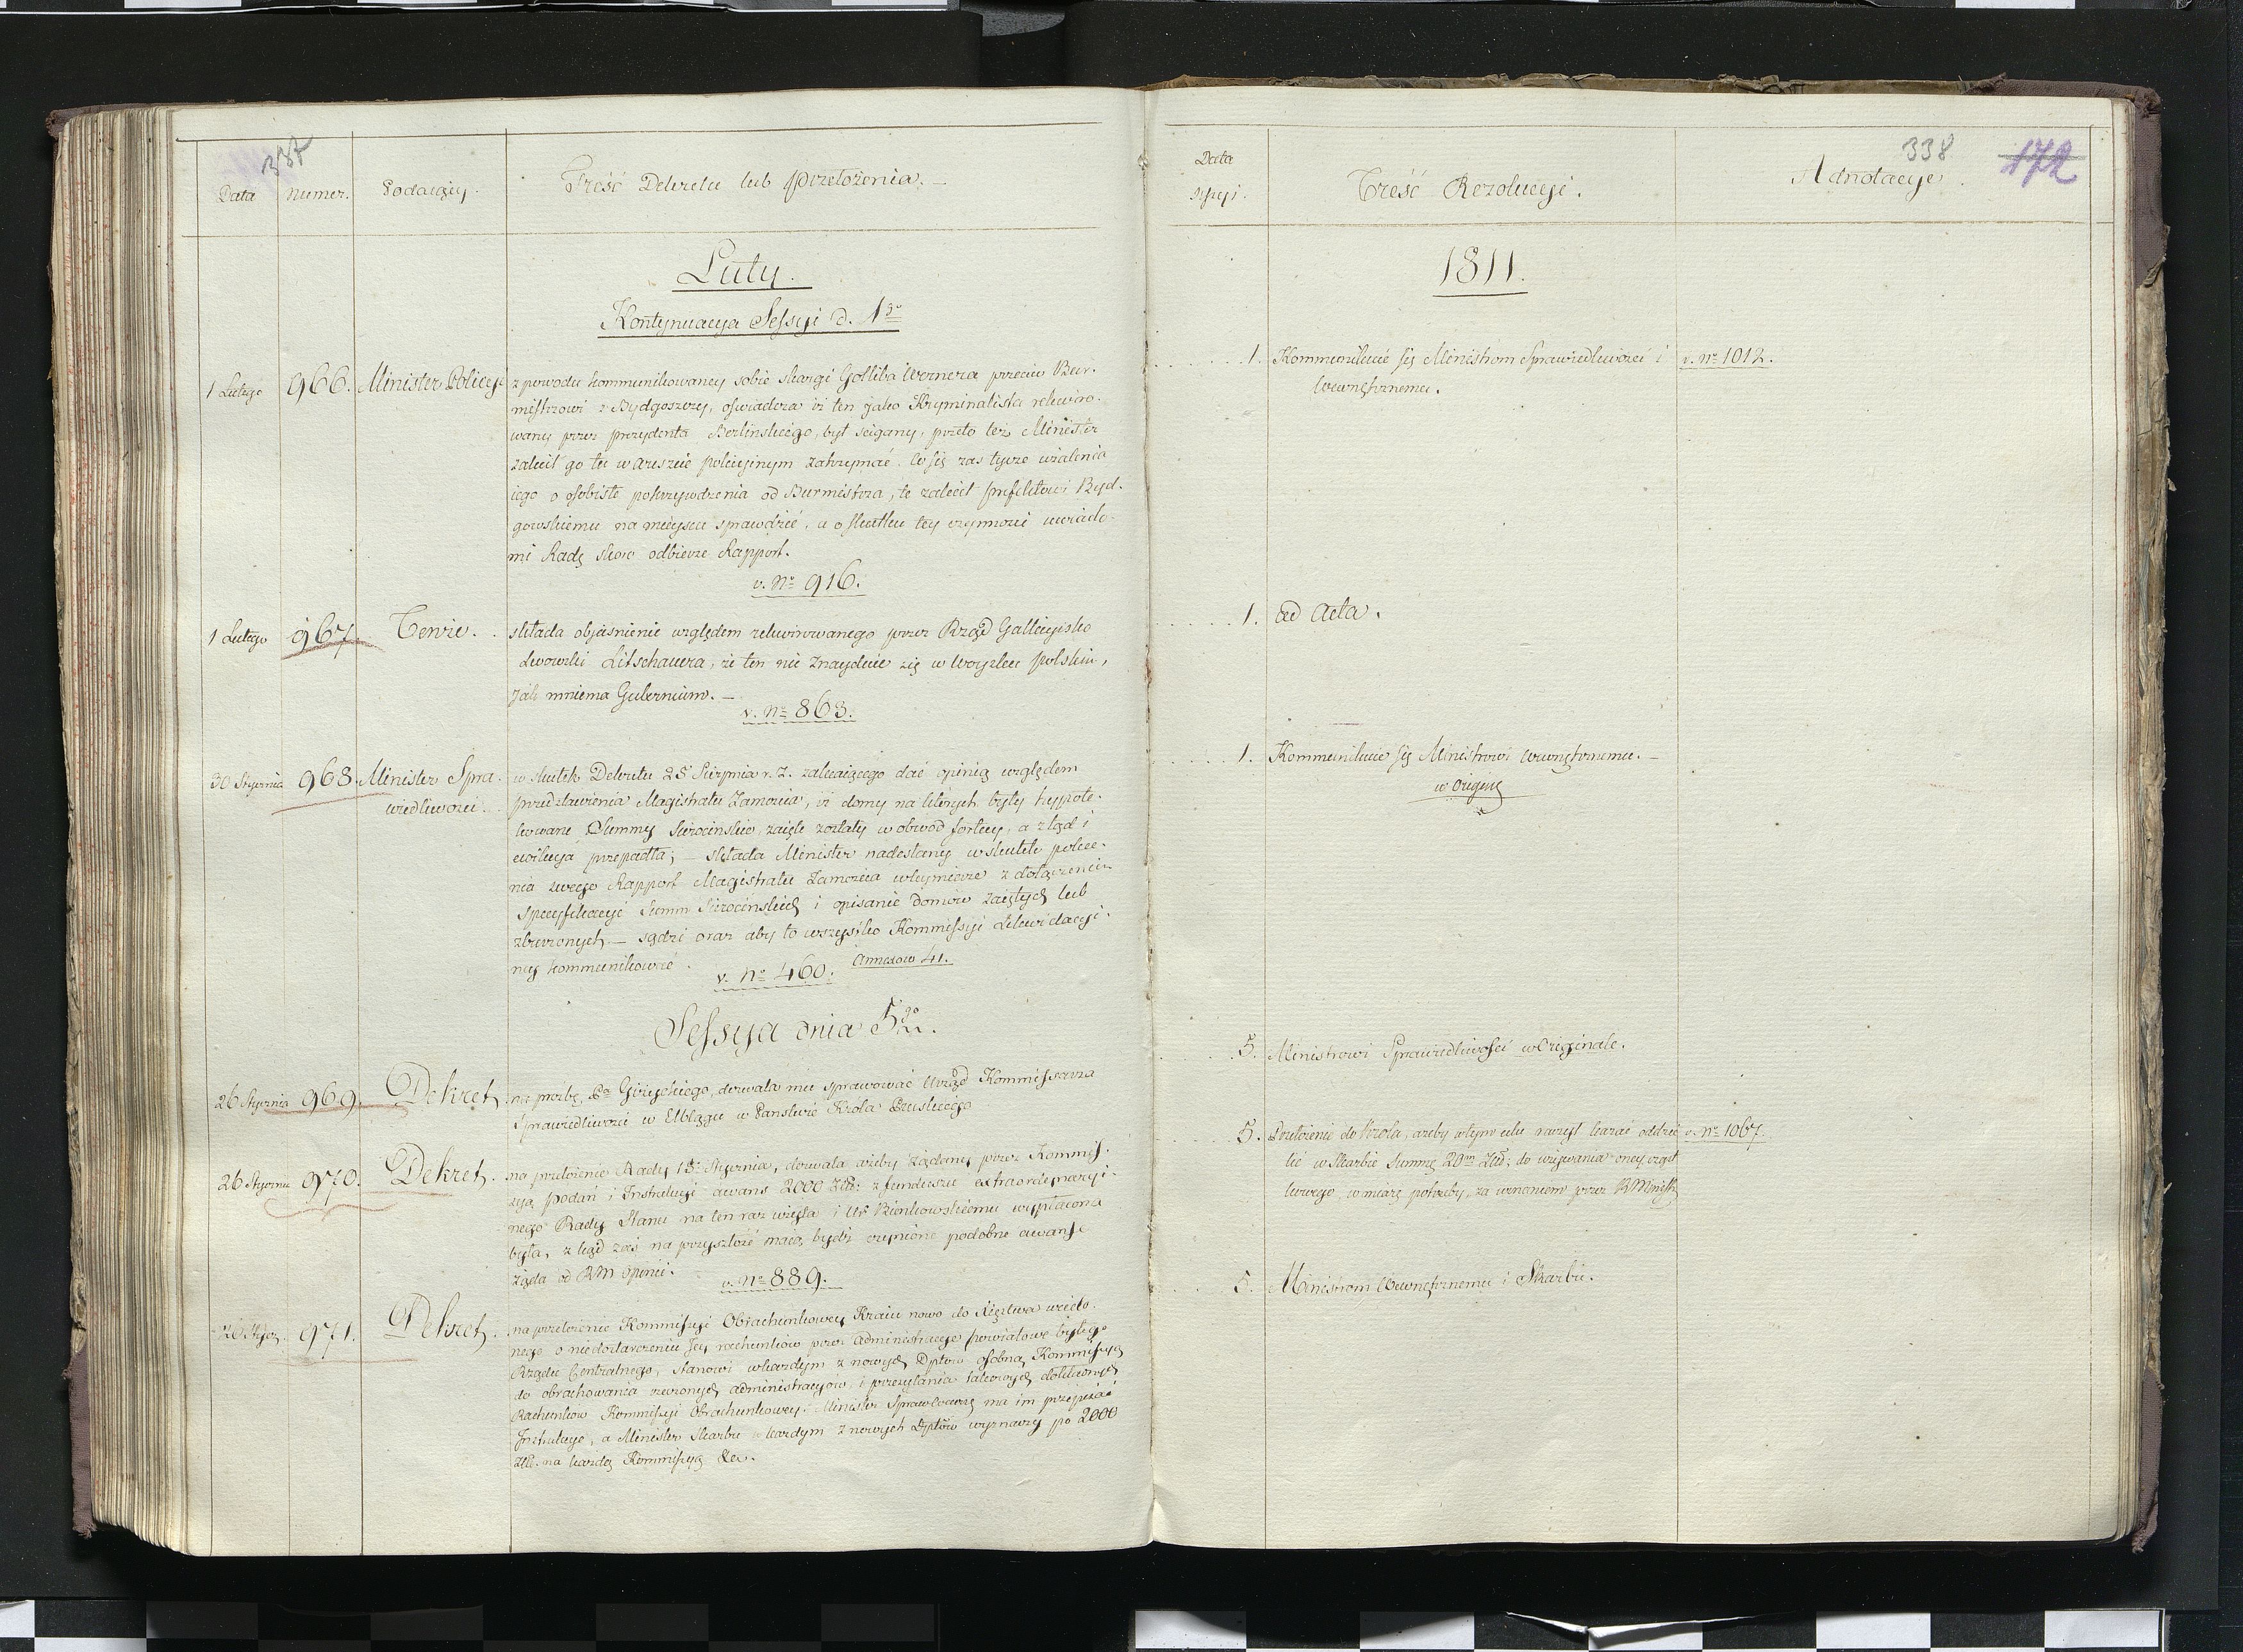 337
Data
Numer.
Podaiący.
Treść Dekretu lub przełożenia. —
Luty.
Kontynuacya Sessyi d. 1go
1 Lutego
966.
Minister Policyi
z powodu kommunikowaney sobie skargi Gotliba Wernera przeciw Bur-
mistrzowi z Bydgoszczy, oświadcza iż ten jako Kryminalista rekwiro-
wany przez prezydenta Berlinskiego, był scigany, przeto też Minister
zalecił go tu w Areszcie policyinym zatrzymać. Co się zas tycze użalenia
iego o osobiste pokrzywdzenia od Burmistrza, te zalecił prefektowi Byd-
gowskiemu na mieyscu sprawdzić, a o skutku tey czynności uwiado-
mi Radę skoro odbierze Rapport.
v. No 916.
1 Lutego
967.
Tenże.
składa objasnienie względem rekwirowanego przez Rząd Gallicyisko
Lwowski Litschauera, że ten nie znayduie się w woysku polskim,
jak mniema Gubernium. —
v. No 863.
30 Stycznia
968.
Minister Spra-
wiedliwości.
w skutek Dekretu 25 Sierpnia r. z. zalecaiącego dać opinią względem
przedstawienia Magistratu Zamościa, iż domy na których były hypote-
kowane Summy Sierocinskie, zaięte zostały w obwód fortecy, a ztąd i
ewikcya przepadła; — składa Minister nadesłany w skutek polece-
nia swego Rapport Magistratu Zamościa w teymierze z dołączeniem
specyfikacyi Summ Sierocinskich i opisanie domów zaiętych lub
zburzonych — sądzi oraz aby to wszystko Kommissyi Likwidacyi-
ney kommunikować.
v. No 460.
Annexow 41.
Sessya dnia 5go
26 Stycznia
969.
Dekret
na prozbę Pa Giżyckiego, dozwala mu sprawować Urząd Kommissarza
Sprawiedliwości w Elblągu w Panstwie Krola Pruskiego
26 Stycznia
970.
Dekret.
na przełożenie Rady 15 Stycznia, dozwala ażeby żądany przez Kommis-
syą podań i Instrukcyi awans 2000 Złł: z funduszu extraordynaryi-
nego Rady Stanu na ten raz wzięta i Ur Bienkowskiemu wypłacona
była, zkąd zaś na przyszłość maią bydź czynione podobne awanse
żąda od RM opinii.
v. No 889.
26 Stycz.
971.
Dekret.
na przełożenie Kommissyi Obrachunkowey Kraiu nowo do Xięstwa wcielo-
nego o niedostarczeniu Jey rachunków przez administracye powiatowe byłego
Rządu Centralnego, stanowi w każdym z nowych Dptow osobną Kommissyą
do obrachowania rzeczonych administracyow i przesyłania takowych dokładnych
Rachunkow Kommissyi Obrachunkowey. Minister Spraw Wewnę ma im przepisać
Instrukcye, a Minister Skarbu w każdym z nowych Dptów wyznaczy po 2000
Złł. na każdą Kommissyą &c.
338
172
Data
Sessyi.
Treść Rezolucyi.
Adnotacye.
1811.
1.
Kommunikuie się Ministrom Sprawiedliwości i
Wewnętrznemu.
v. No 1012.
1.
ad Acta.
1.
Kommunikuie się Ministrowi Wewnętrznemu. —
w origine
5.
Ministrowi Sprawiedliwości w Originale.
5.
Przełożenie do Krola, ażeby w tym celu raczył kazać oddzie-
lić w Skarbie Summę 20m Złł; do używania oney cząst-
kowego w miarę potrzeby, za uznaniem przez R Ministr
v. No 1067.
5.
Ministrom Wewnętrznemu i Skarbu.